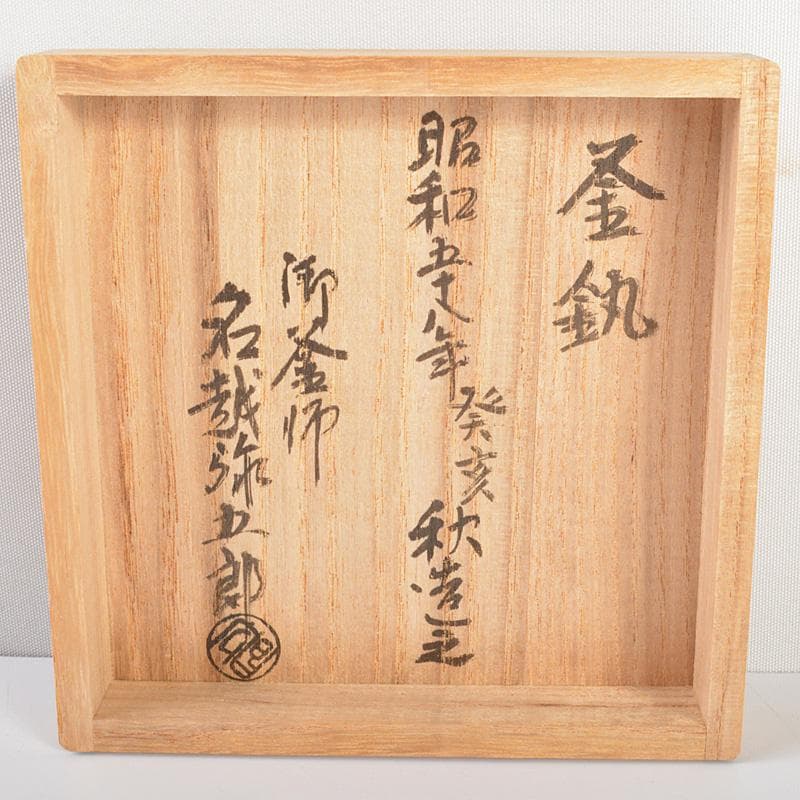 釜釻
昭和五十八年 癸亥 秋造之
御釜師
名越弥五郎